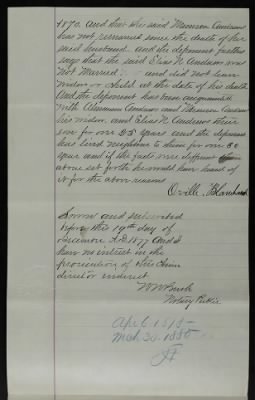 1870. and that the said Marrison Andrews
has not remarried since the death of her
said husband. and the deponent further
says that the said Elias N Andrews was
Not Married. and did not leave
widow or child at the date of his death
And the deponent has been acquainted
with Andrews and Andrews
his widow, and Elias N. Andrews their
son for over 25 years and the deponent
has lived neighbors to them for over 20
years and if the facts were different from
above set forth he would have heard of
it for the above reasons
Orville. Blanchard
Sworn and subscribed
before this 19th day of
December A.D 1877 and I
have no interest in the
prosecution of this Claim
direct or indirect
W W Bush
Notary Public
Apr 6.
Mch 30. 1880